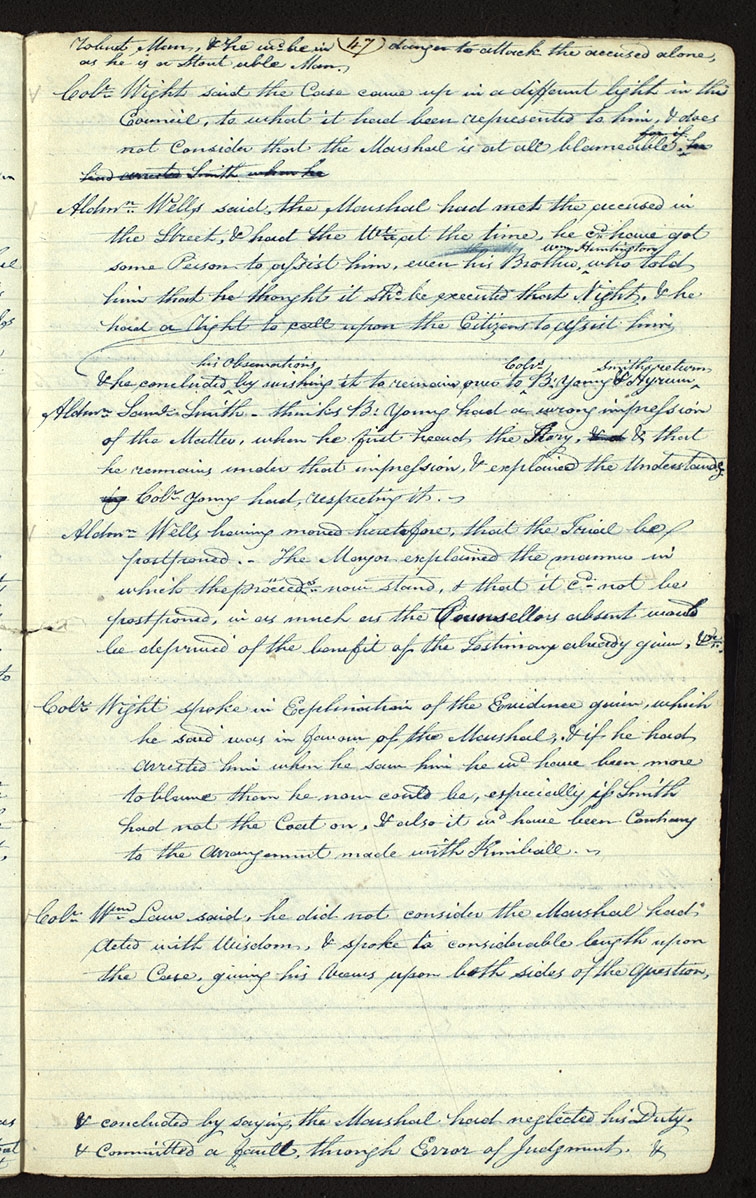 robust Man, & he wd. be in (47) danger to attack the accused alone,
as he is a Stout able Man,
Colr. Wight said the Case came up in a different light in the
Council, to what it had been represented to him, & does
not consider that the Marshal is at all blameable, for if he
had arrested Smith when he
Aldmn. Wells said, the Marshal had met the accused in
the Street, & had the Writ at the time, he cd. have got
some Person to assist him, even his Brother, Wm. Huntington, who told
him that he thought it shd. be executed that Night, & he
had a right to call upon the Citizens to assist him,
& he concluded his Observations, by wishing it to remain over to Colr. B: Young & Hyrum Smith's return
Aldmn. Saml. Smith - thinks B: Young had a wrong impression
of the Matter, when he first heard the Story, & d & that
he remains under that impression, & explained the Understandg.
ig Colr. Young had, respecting it. ~
Aldmn. Wells having moved heretofore, that the Trial be
postponed. - The Mayor explained the manner in
which the proceedgs. now stand, & that it cd. not be
postponed, in as much as the Counsellors absent would
be deprived of the benefit of the Testimony already given, &c.
Colr. Wight spoke in Explination of the Evidence given, which
he said was in favour of the Marshal, & if he had
arrested him when he saw him he wd. have been more
to blame than he now could be, especially if Smith
had not the Coat on, & also it wd. have been Contrary
to the arrangement made with Kimball. ~
Colr. Wm. Law said, he did not consider the Marshal had
Acted with Wisdom, & spoke to considerable length upon
the Case, giving his Views upon both sides of the Question,
& concluded by saying, the Marshal had neglected his Duty.
& Committed a fault, through Error of Judgment. &